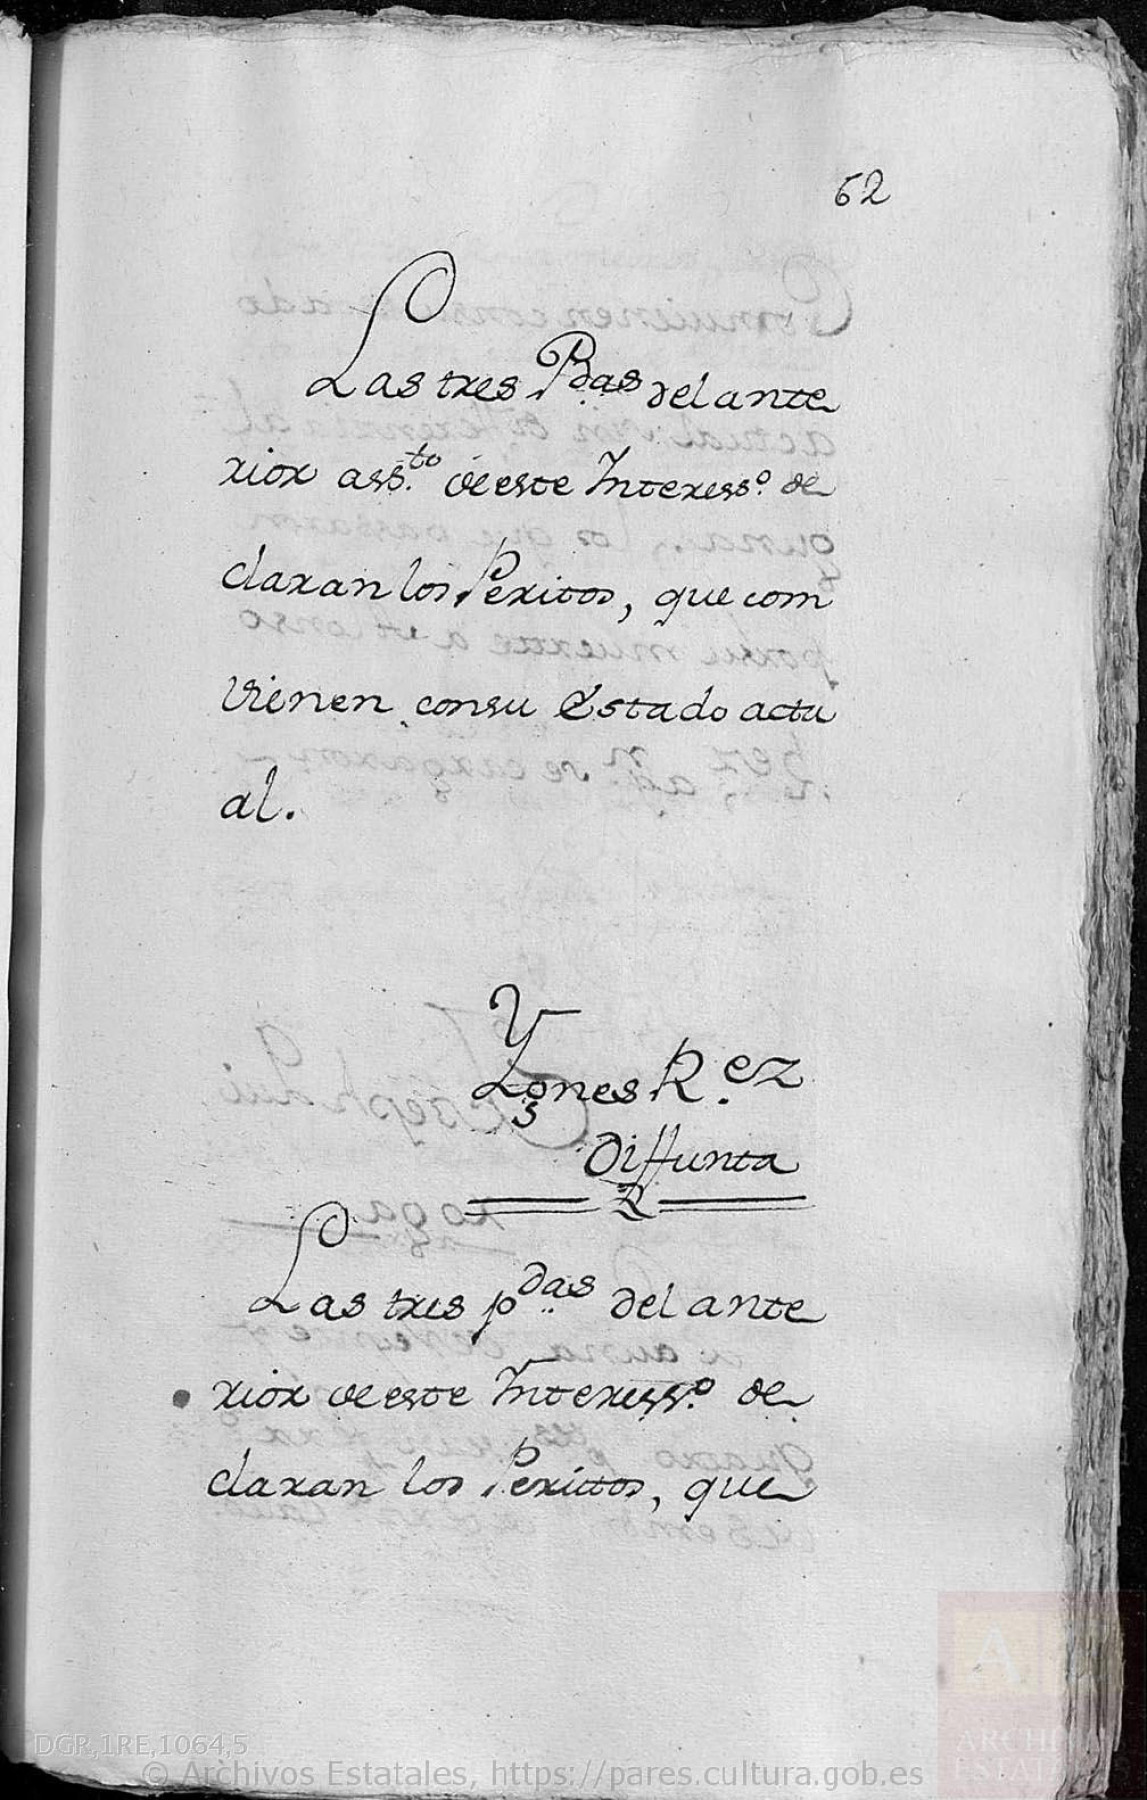 62
Las tres Pdas del ante
rior ass.to de este Interess.o de
claran los Peritos, que com
vienen con su Estado actu
al.
Ygnes R.ez
Diffunta
Las tres pdas del ante
rior de este Interess.o de
claran los Perittos, que
DGR,1RE,1064,5
© Archivos Estatales, https://pares.cultura.gob.es